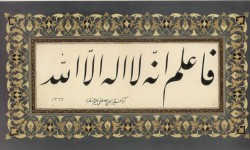 فاعلم انّه لا اله الّا الله